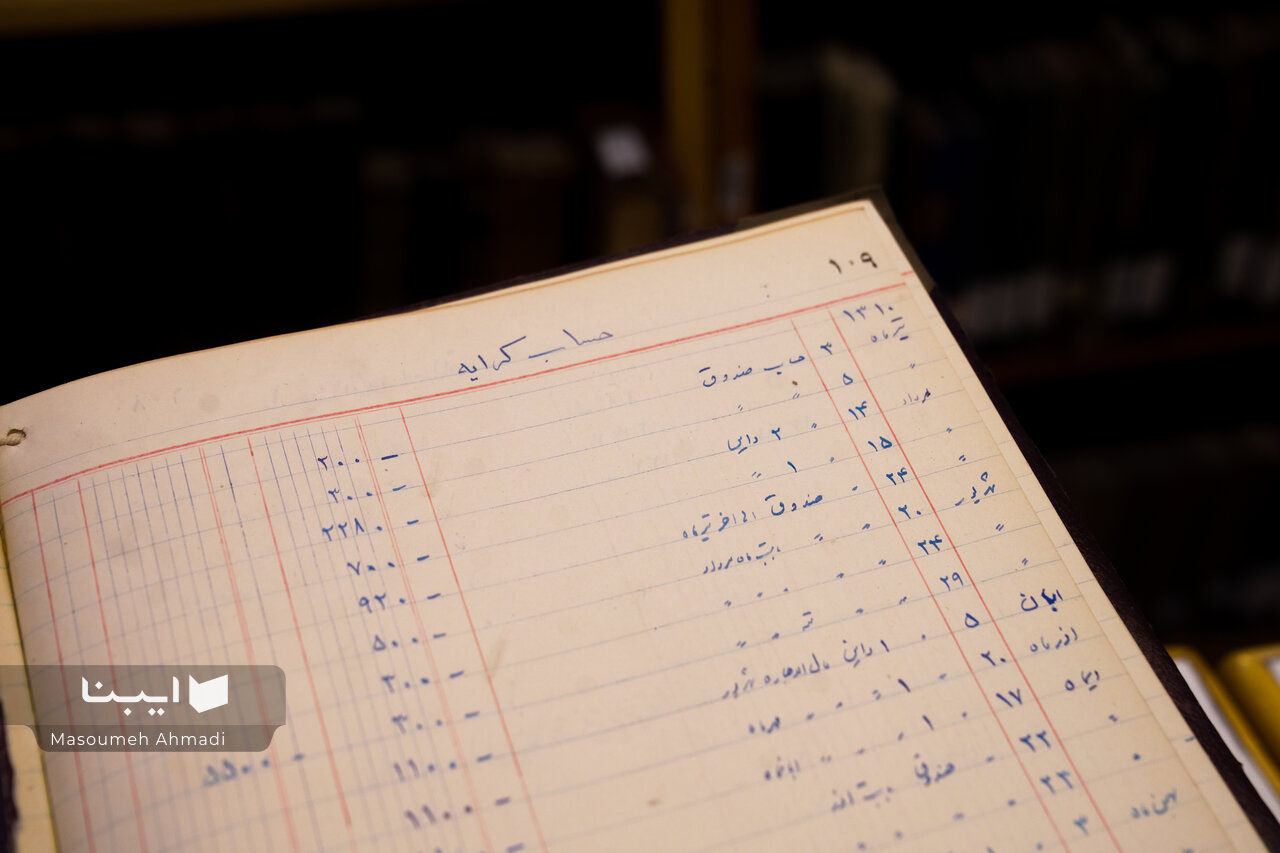 ۱۰۹
حساب کرایه
۱۳۱۰
تیرماه ۳ حساب صندوق ۲۰۰ -
" ۵ " " ۳۰۰ -
مرداد ۱۴ " ۲ داین ۲۲۸۰ -
" ۱۵ " ۱ " ۷۰۰ -
" ۲۴ " صندوق الی اخر تیرماه ۹۲۰ -
شهریور ۲۰ " " بابت ماه مرداد ۵۰۰ -
" ۲۴ " " " " " ۳۰۰ -
" ۲۹ " " " " ۳۰۰ -
ابان ۵ " ۱ داین مال الاجاره شهریور ۱۱۰۰ - ۵۵۰۰ -
اذرماه ۲۰ " ۱ " " " مهرماه ۱۱۰۰ -
دیماه ۱۷ " ۱ " " " ابانماه
" ۲۲ " صندوق بابت اذر
" ۲۳
بهمن ماه ۳
ایبنا
Masoumeh Ahmadi